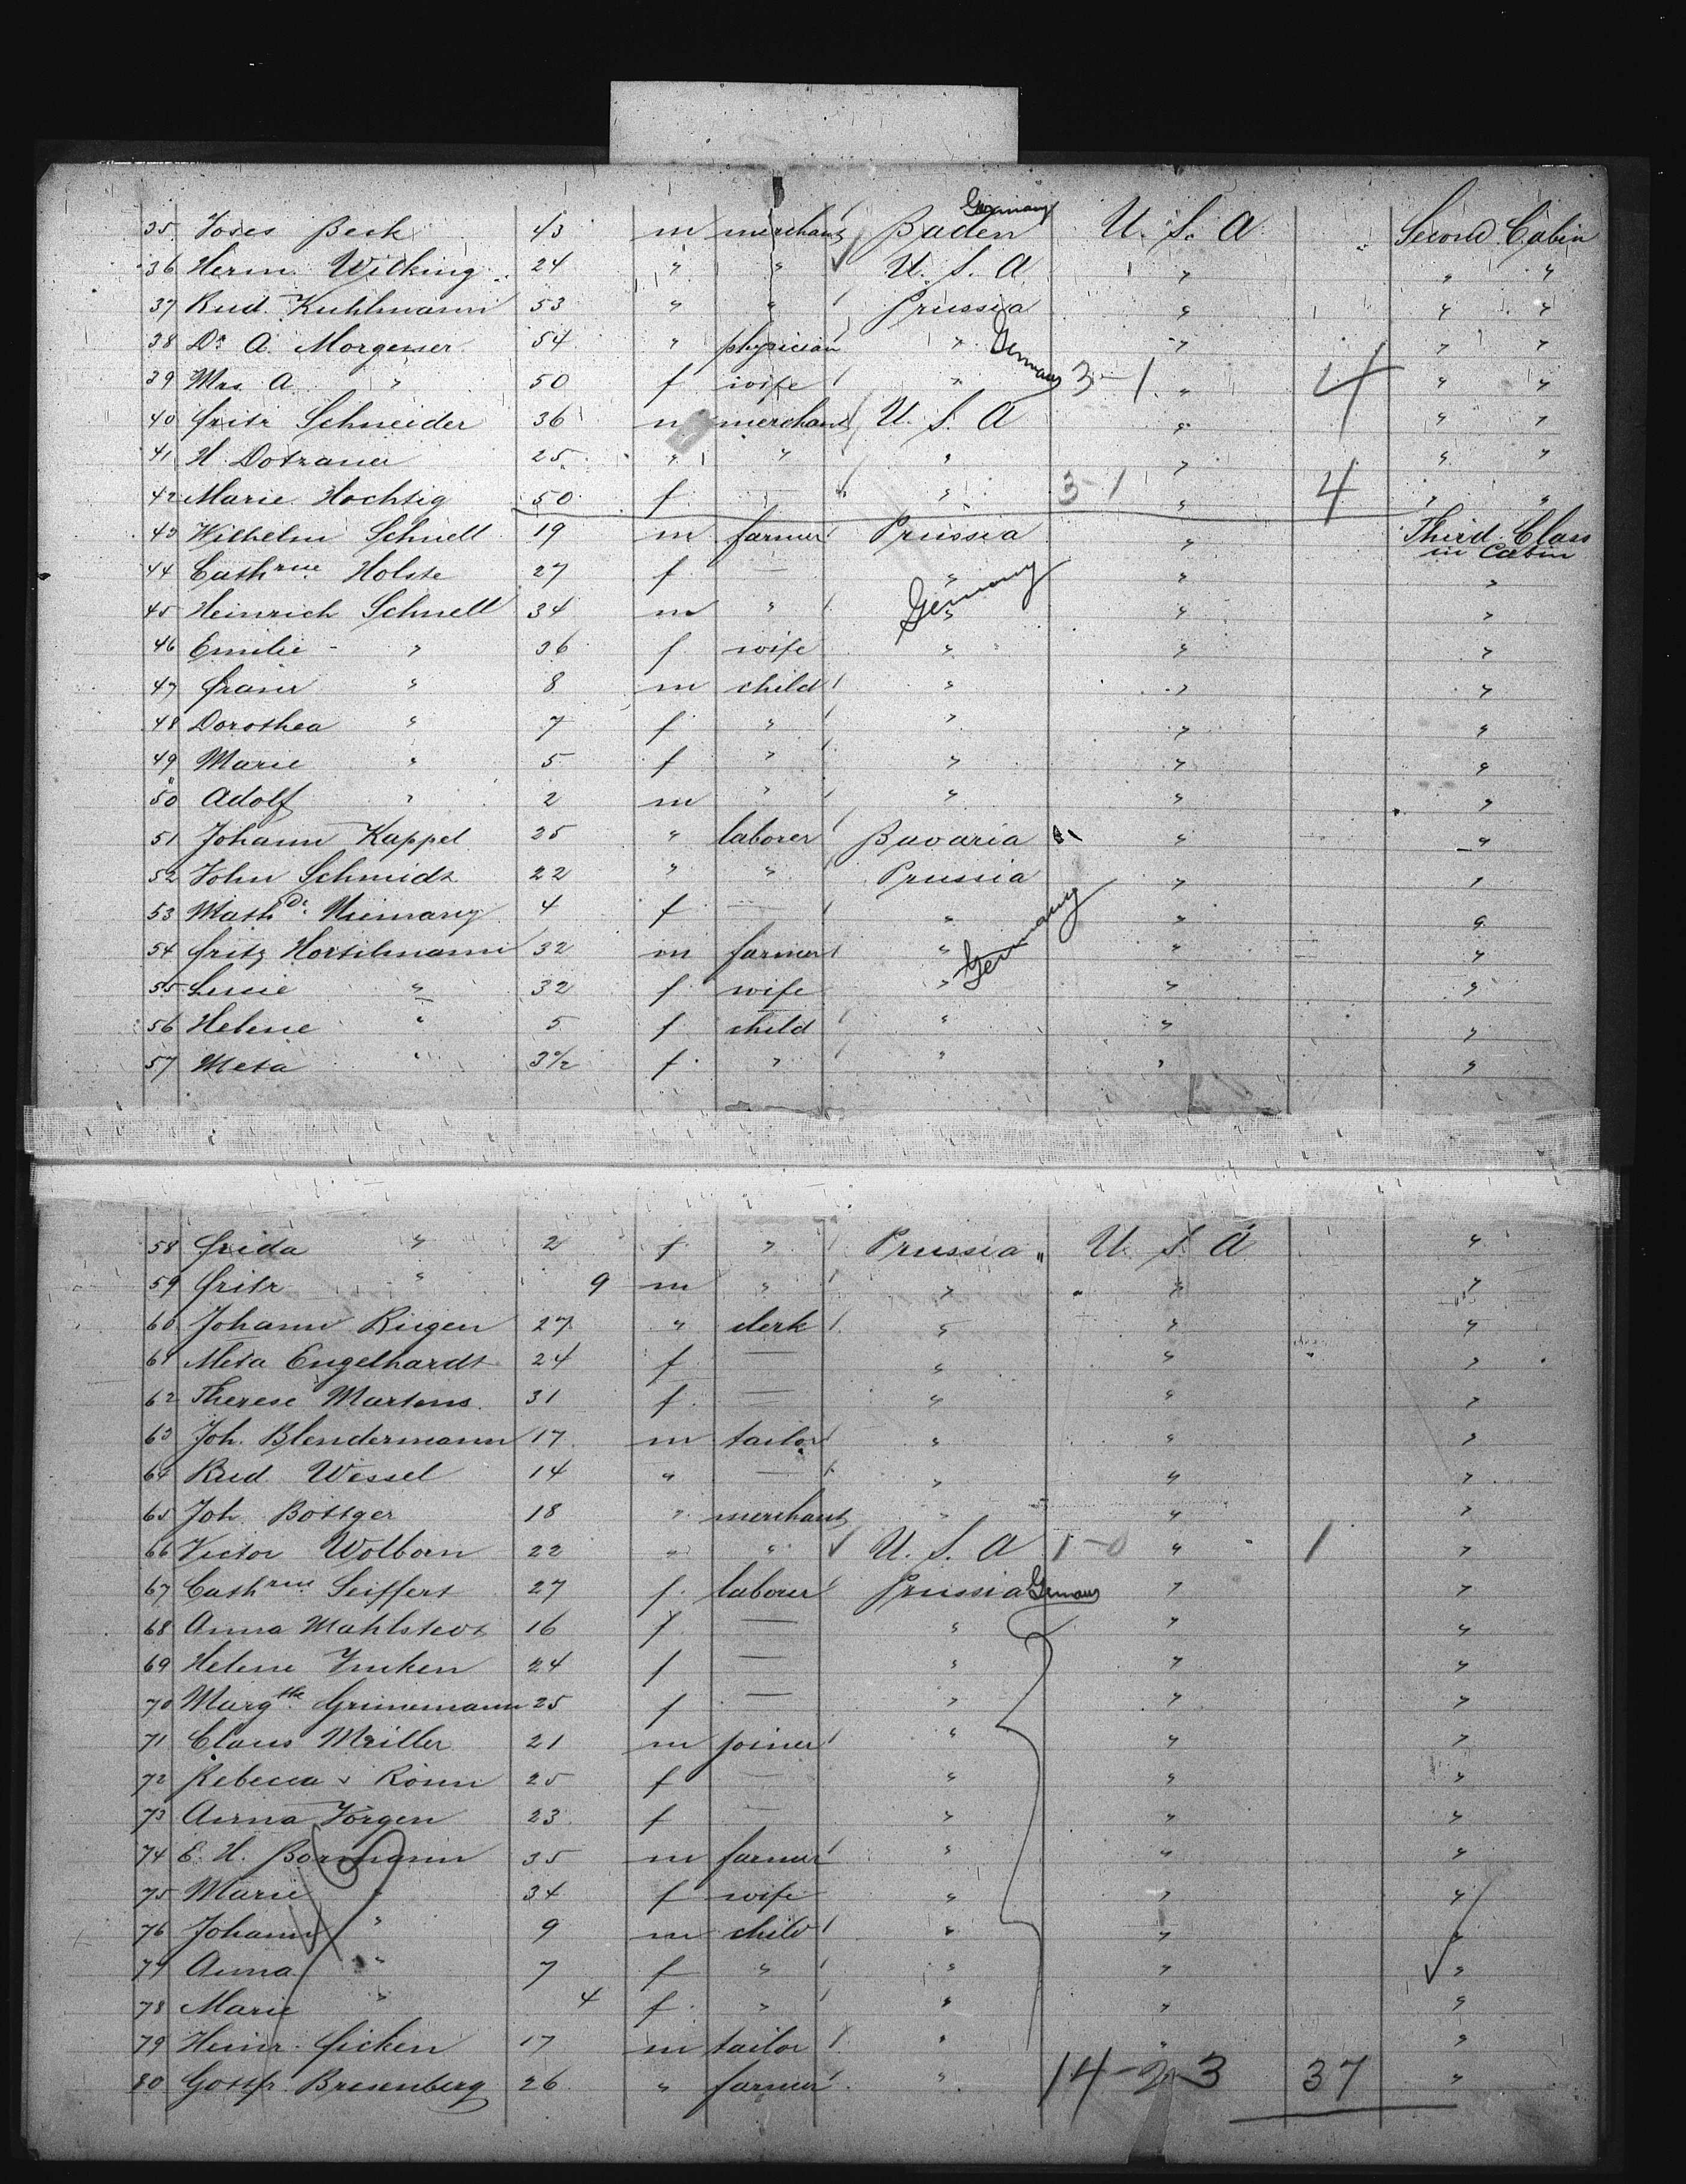 35 Joses Beck 43 m merchant Baden Germany U. S. A Second Cabin
36 Herm. Wilking 24 " " U. S. A " " "
37 Rud. Kuhlmann 53 " " Prussia " " "
38 Dr A. Morgener 54 " physician " Germany " " "
39 Mrs. A. " 50 f wife " 3-1 " 4 " "
40 Fritz Schneider 36 m merchant U. S. A " " "
41 H. Dotzauer 25 " " " " " "
42 Marie Hochsig 50 f — " 3-1 " 4 " "
43 Wilhelm Schnell 19 m farmer Prussia " Third Class in Cabin
44 Cathrine Holste 27 f — " " "
45 Heinrich Schnell 34 m " " Germany " "
46 Emilie " 36 f wife " " "
47 Franz " 8 m child " " "
48 Dorothea " 7 f " " " "
49 Marie " 5 f " " " "
50 Adolf " 2 m " " " "
51 Johann Kappel 25 " laborer Bavaria " "
52 John Schmidt 22 " " Prussia " "
53 Mathde 4 f — " " "
54 Fritz Horstmann 32 m farmer " Germany " "
55 " 32 f wife " " "
56 Helene " 5 f child " " "
57 Meta " 3½ f " " " "
58 Frida " 2 f " Prussia " U. S. A "
59 Fritz " 9 m " " " "
60 Johann Rugen 27 " clerk " " "
61 Meta Engelhardt 24 f — " " "
62 Therese Martens 31 f — " " "
63 Joh. Blendermann 17 m tailor " " "
64 Rud. Wessel 14 " — " " "
65 Joh. Bottger 18 " merchant " " "
66 Victor Wolborn 22 " " U. S. A 1-0 " 1 "
67 Cathrine Seiffert 27 f laborer Prussia Germany " "
68 Anna Mahlstedt 16 f — " " "
69 Helene Imken 24 f — " " "
70 Margthe Grunemann 25 f — " " "
71 Claus Müller 21 m joiner " " "
72 Rebecca v Rönn 25 f — " " "
73 Anna Jörgen 23 f — " " "
74 E. H. Bormann 35 m farmer " " "
75 Marie " 34 f wife " " "
76 Johann " 9 m child " " "
77 Anna " 7 f " " " "
78 Marie " 4 f " " " "
79 Heinr. Ficken 17 m tailor " " "
80 Gottfr. Bresenberg 26 " farmer " 14-23 37 "